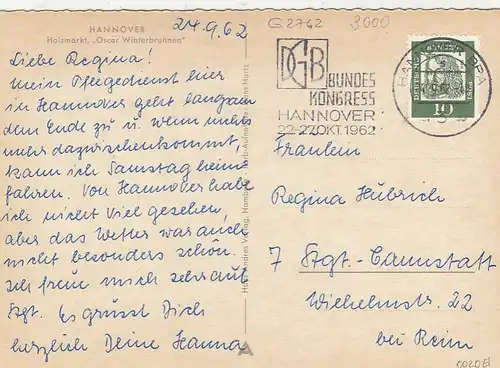 HANNOVER
Holzmarkt, „Oscar Winterbrunnen"
24.9.62
Liebe Regina!
Mein Pflegedienst hier
in Hannover geht langsam
dem Ende zu u. wenn nichts
mehr dazwischenkommt,
kann ich Samstag heim
fahren. Von Hannover habe
ich nicht viel gesehen,
aber das Wetter war auch
nicht besonders schön.
Ich freue mich sehr auf
Stgt. Es grüsst Dich
herzlich Deine Hanna
G2742
3000
DGB
BUNDES
KONGRESS
HANNOVER
22-27.OKT.1962
DEUTSCHE BUNDESPOST
10
Fräulein
Regina Hübrich
7 Stgt.-Cannstatt
Wilhelmstr. 22
bei Reim
0020El